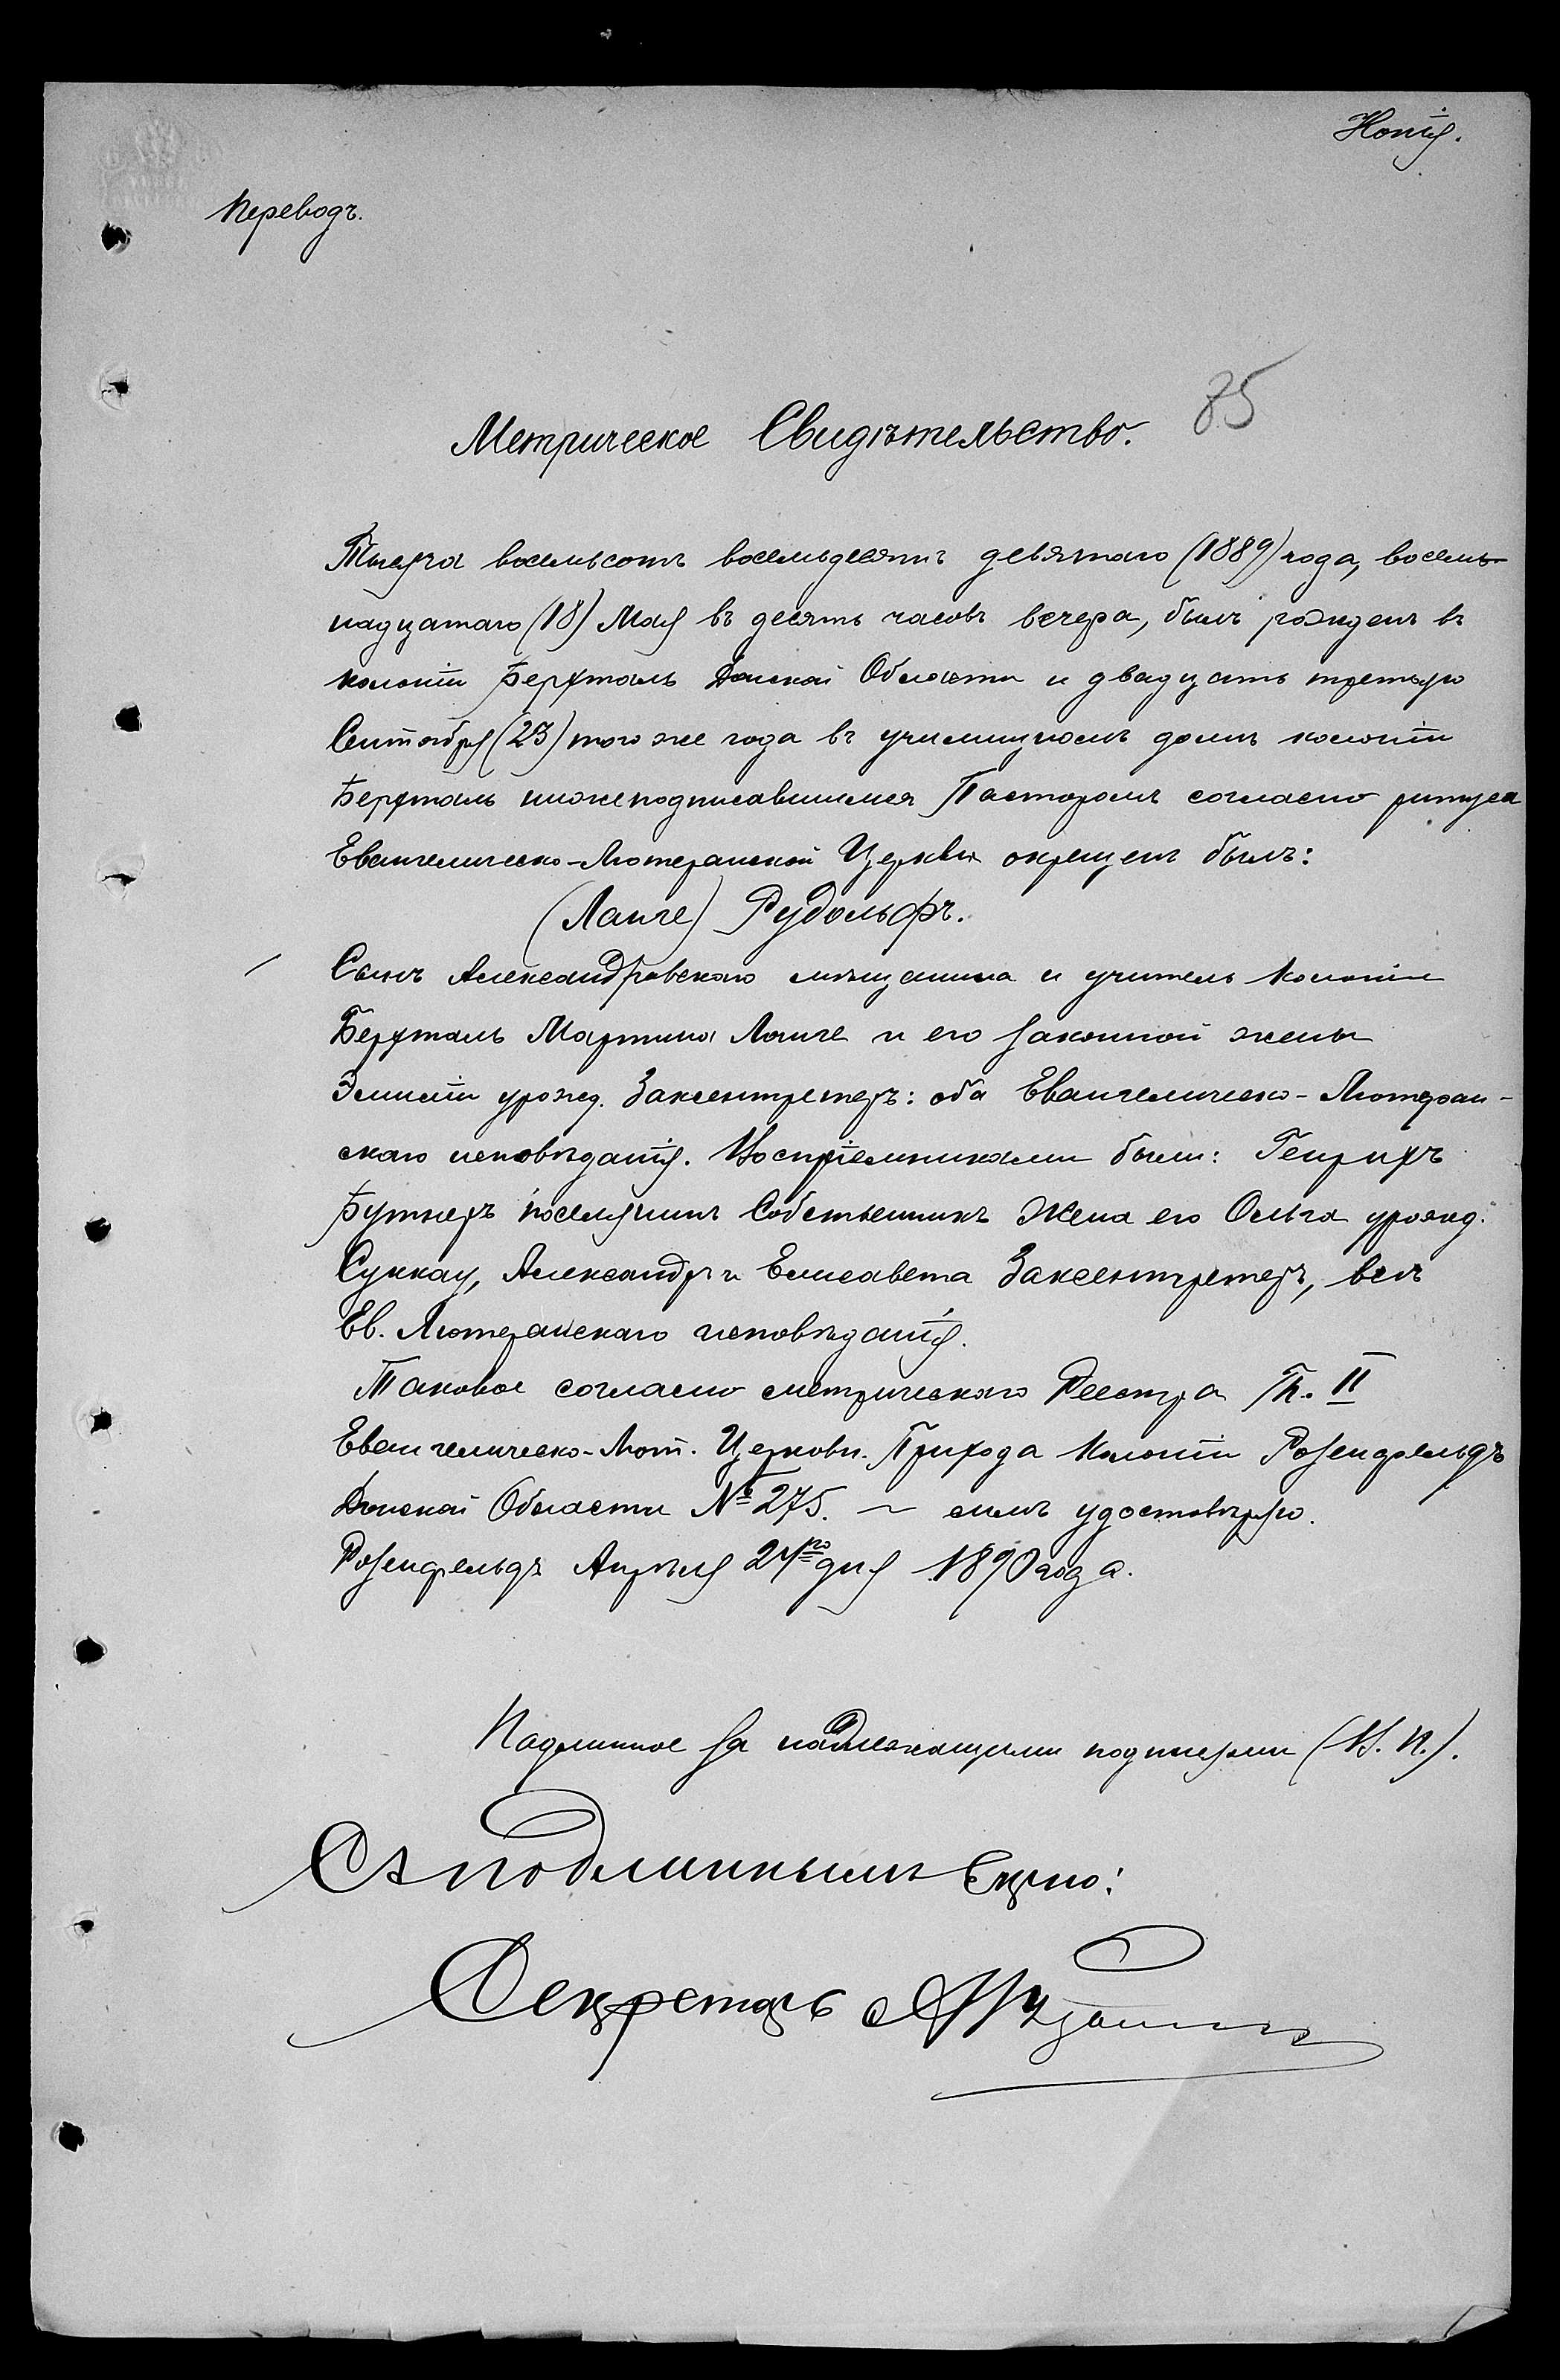 Копія.
Переводъ.
85
Метрическое Свидѣтельство.
Тысяча восемьсотъ восемьдесятъ девятаго (1889) года, восемь-
надцатаго (18) Мая въ десять часовъ вечера, былъ рожденъ въ
колоніи Берхталь Донской Области и двадцать третьяго
Сентября (23) того же года въ училищномъ домѣ колоніи
Берхталь нижеподписавшимся Пасторомъ согласно ритуса
Евангелическо-Лютеранской Церкви окрещенъ былъ:
(Ланге) Рудольфъ.
Сынъ Александровскаго мѣщанина и учитель Колоніи
Берхталь Мартина Ланге и его законной жены
Эмиліи урожд. Заксентретеръ: оба Евангелическо-Лютеран-
скаго исповѣданія. Воспріемниками были: Генрихъ
Бутнеръ поселянинъ Собственникъ Жена его Ольга урожд.
Суккау, Александръ и Елисавета Заксентретеръ, всѣ
Ев. Лютеранскаго исповѣданія.
Таковое согласно метрическаго Реестра Th. II
Евангелическо-Лют. Церковн. Прихода Колоніи Розенфельдъ
Донской Области № 275. ~ симъ удостовѣряю.
Розенфельдъ Апрѣля 24го дня 1890 года.
Подлинное за надлежащими подписями (М. П.).
Съ подлиннымъ вѣрно:
Секретарь